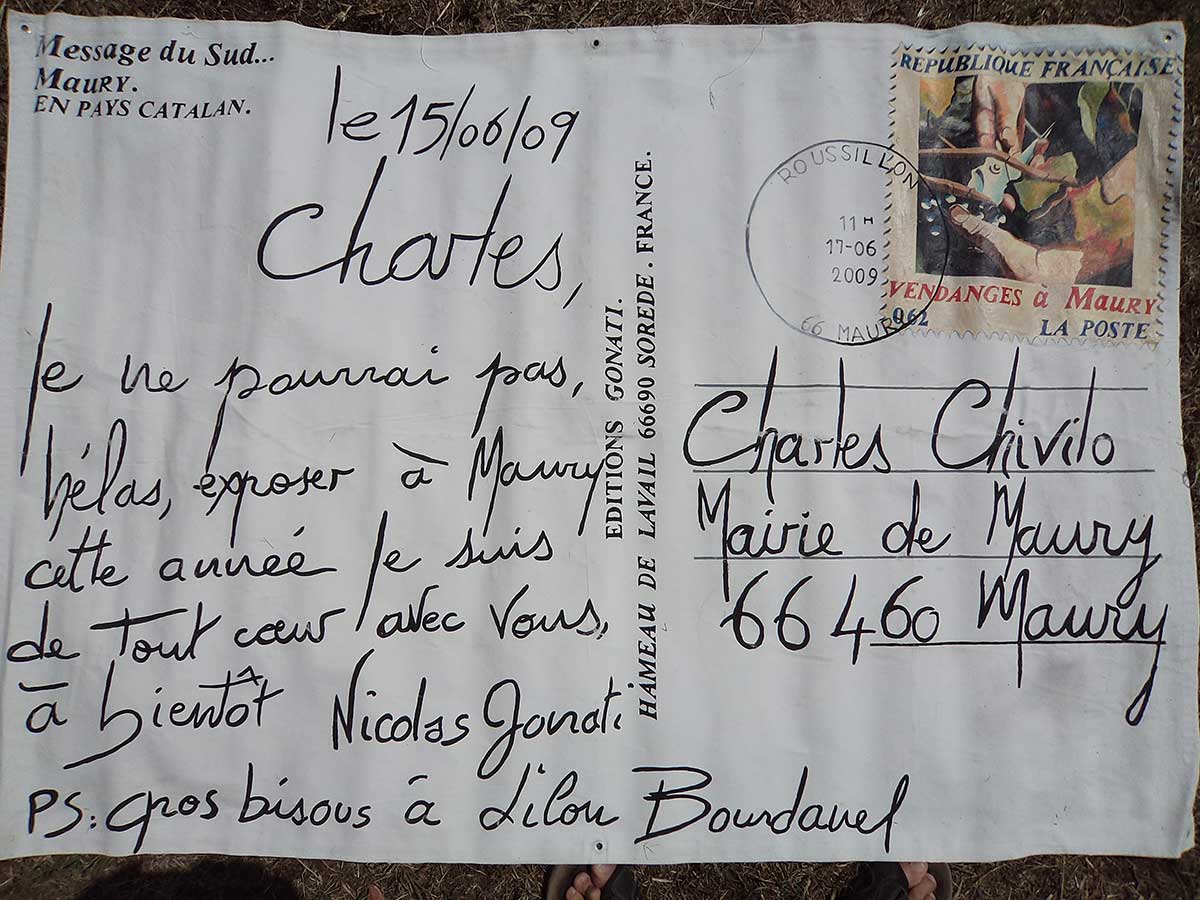 Message du Sud...
Maury.
EN PAYS CATALAN.
le 15/06/09
Charles,
Je ne pourrai pas,
hélas, exposer à Maury
cette année Je suis
de tout cœur avec vous,
à bientôt Nicolas Gonati
PS: gros bisous à Lilou Bourdanel
EDITIONS GONATI.
HAMEAU DE LAVAIL 66690 SOREDE. FRANCE.
REPUBLIQUE FRANÇAISE
VENDANGES à MAURY
0,62 LA POSTE
ROUSSILLON
11H
17-06
2009
66 MAURY
Charles Chivilo
Mairie de Maury
66460 Maury